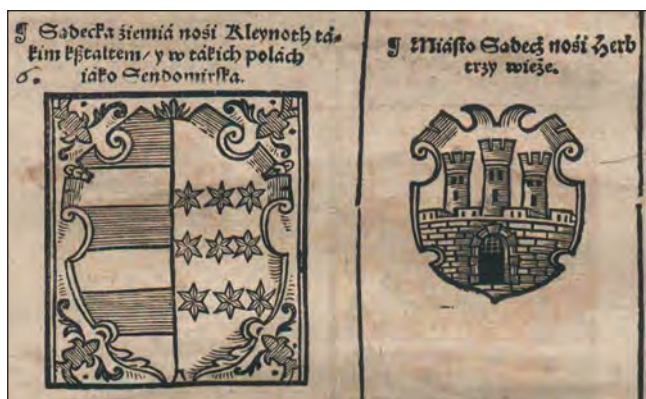 ¶ Sądecka źiemiá nośi Kleynoth tá⸗
kim kßtałtem/ y w tákich polách
6. iáko Sendomirſka.
¶ Miáſto Sądecż nośi Herb
trzy wieże.